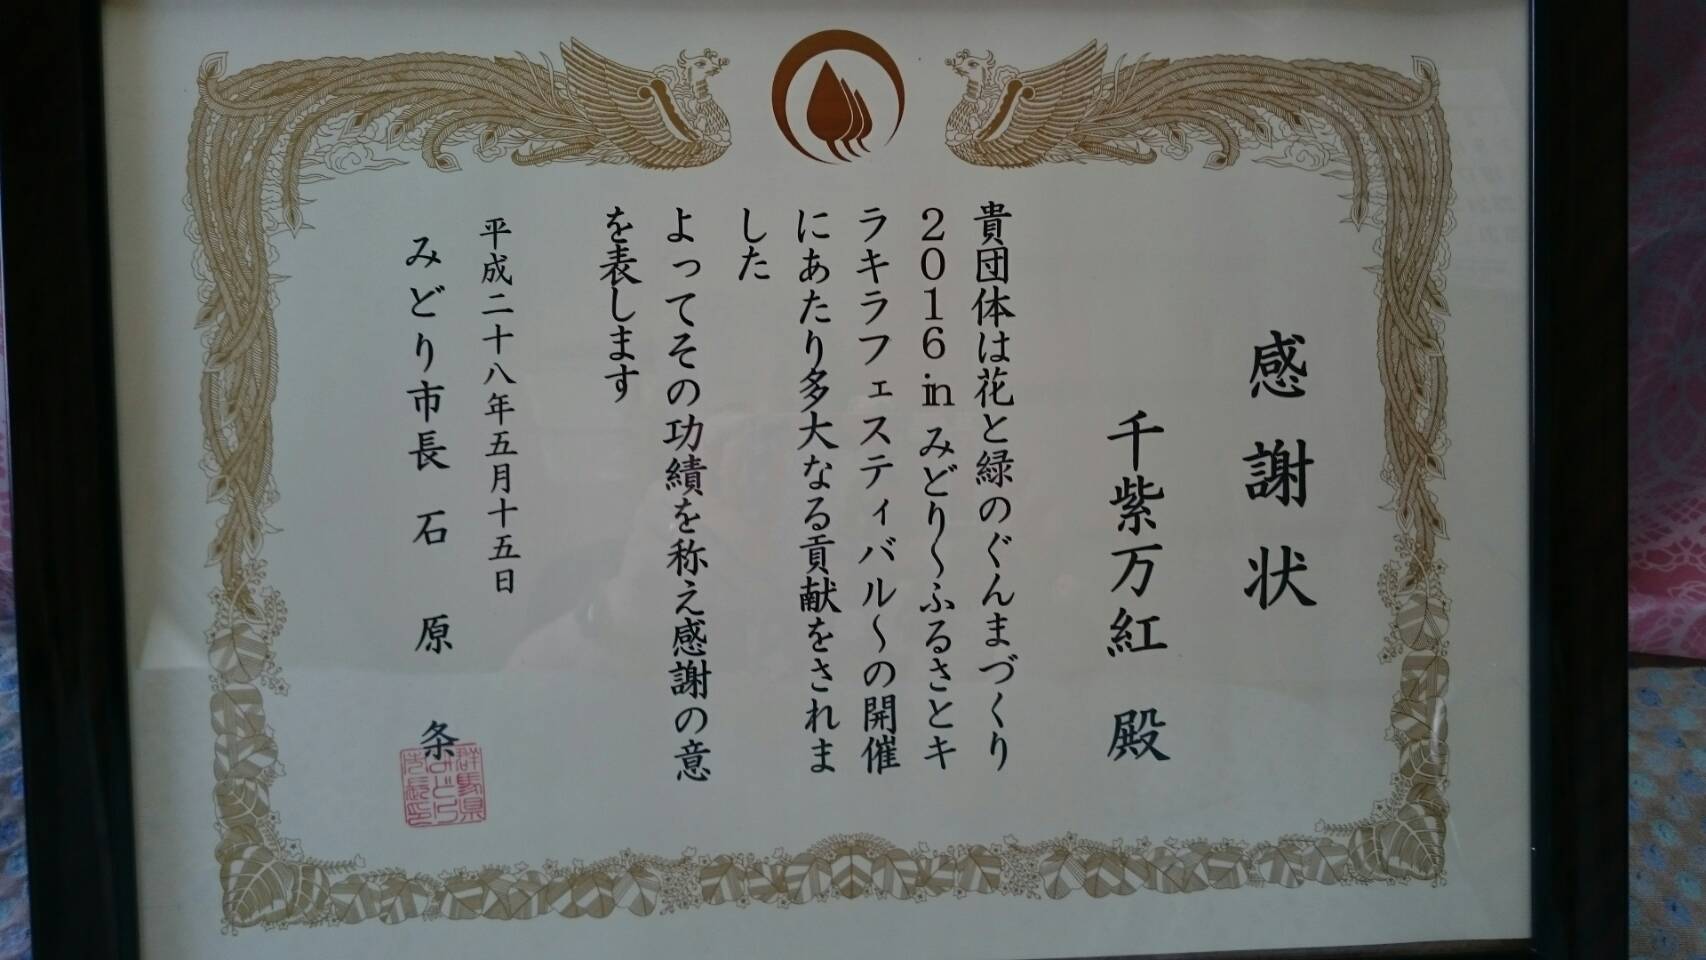 感謝状
千紫万紅 殿
貴団体は花と緑のぐんまづくり
2016 in みどり～ふるさとキ
ラキラフェスティバル～の開催
にあたり多大なる貢献をされま
した
よってその功績を称え感謝の意
を表します
平成二十八年五月十五日
みどり市長 石原 条
群馬県
みどり
市長印